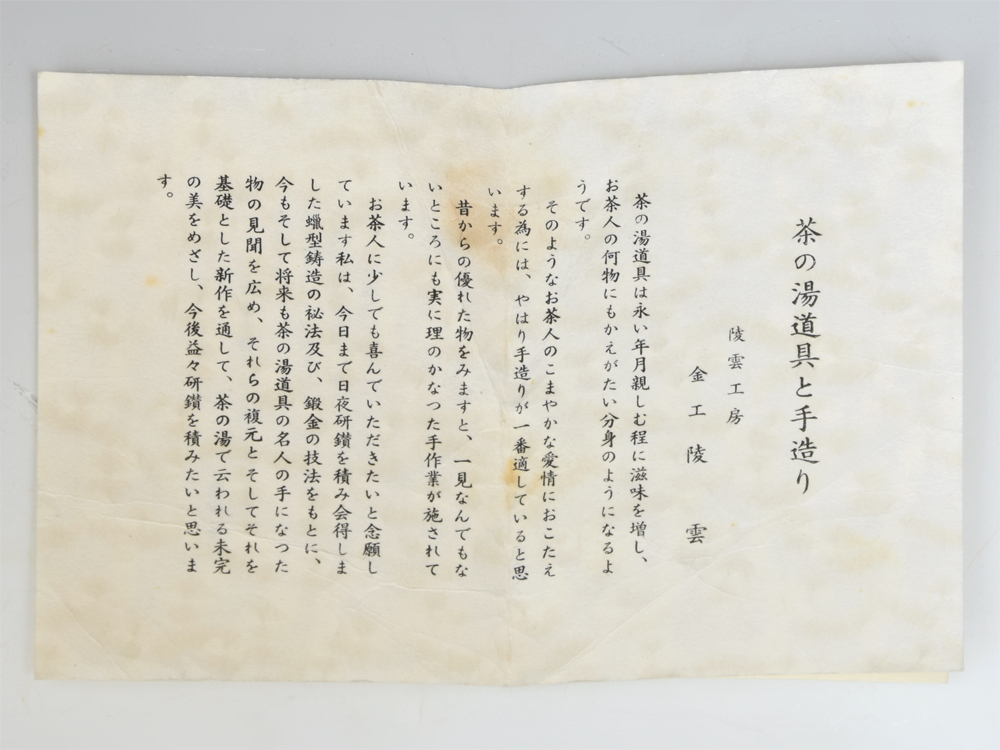 茶の湯道具と手造り
陵雲工房
金工陵雲
茶の湯道具は永い年月親しむ程に滋味を増し、
お茶人の何物にもかえがたい分身のようになるよ
うです。
そのようなお茶人のこまやかな愛情におこたえ
する為には、やはり手造りが一番適していると思
います。
昔からの優れた物をみますと、一見なんでもな
いところにも実に理のかなつた手作業が施されて
います。
お茶人に少しでも喜んでいただきたいと念願し
ています私は、今日まで日夜研鑚を積み会得しま
した蠟型鋳造の秘法及び、鍛金の技法をもとに、
今もそして将来も茶の湯道具の名人の手になつた
物の見聞を広め、それらの複元とそしてそれを
基礎とした新作を通して、茶の湯で云われる未完
の美をめざし、今後益々研鑚を積みたいと思いま
す。